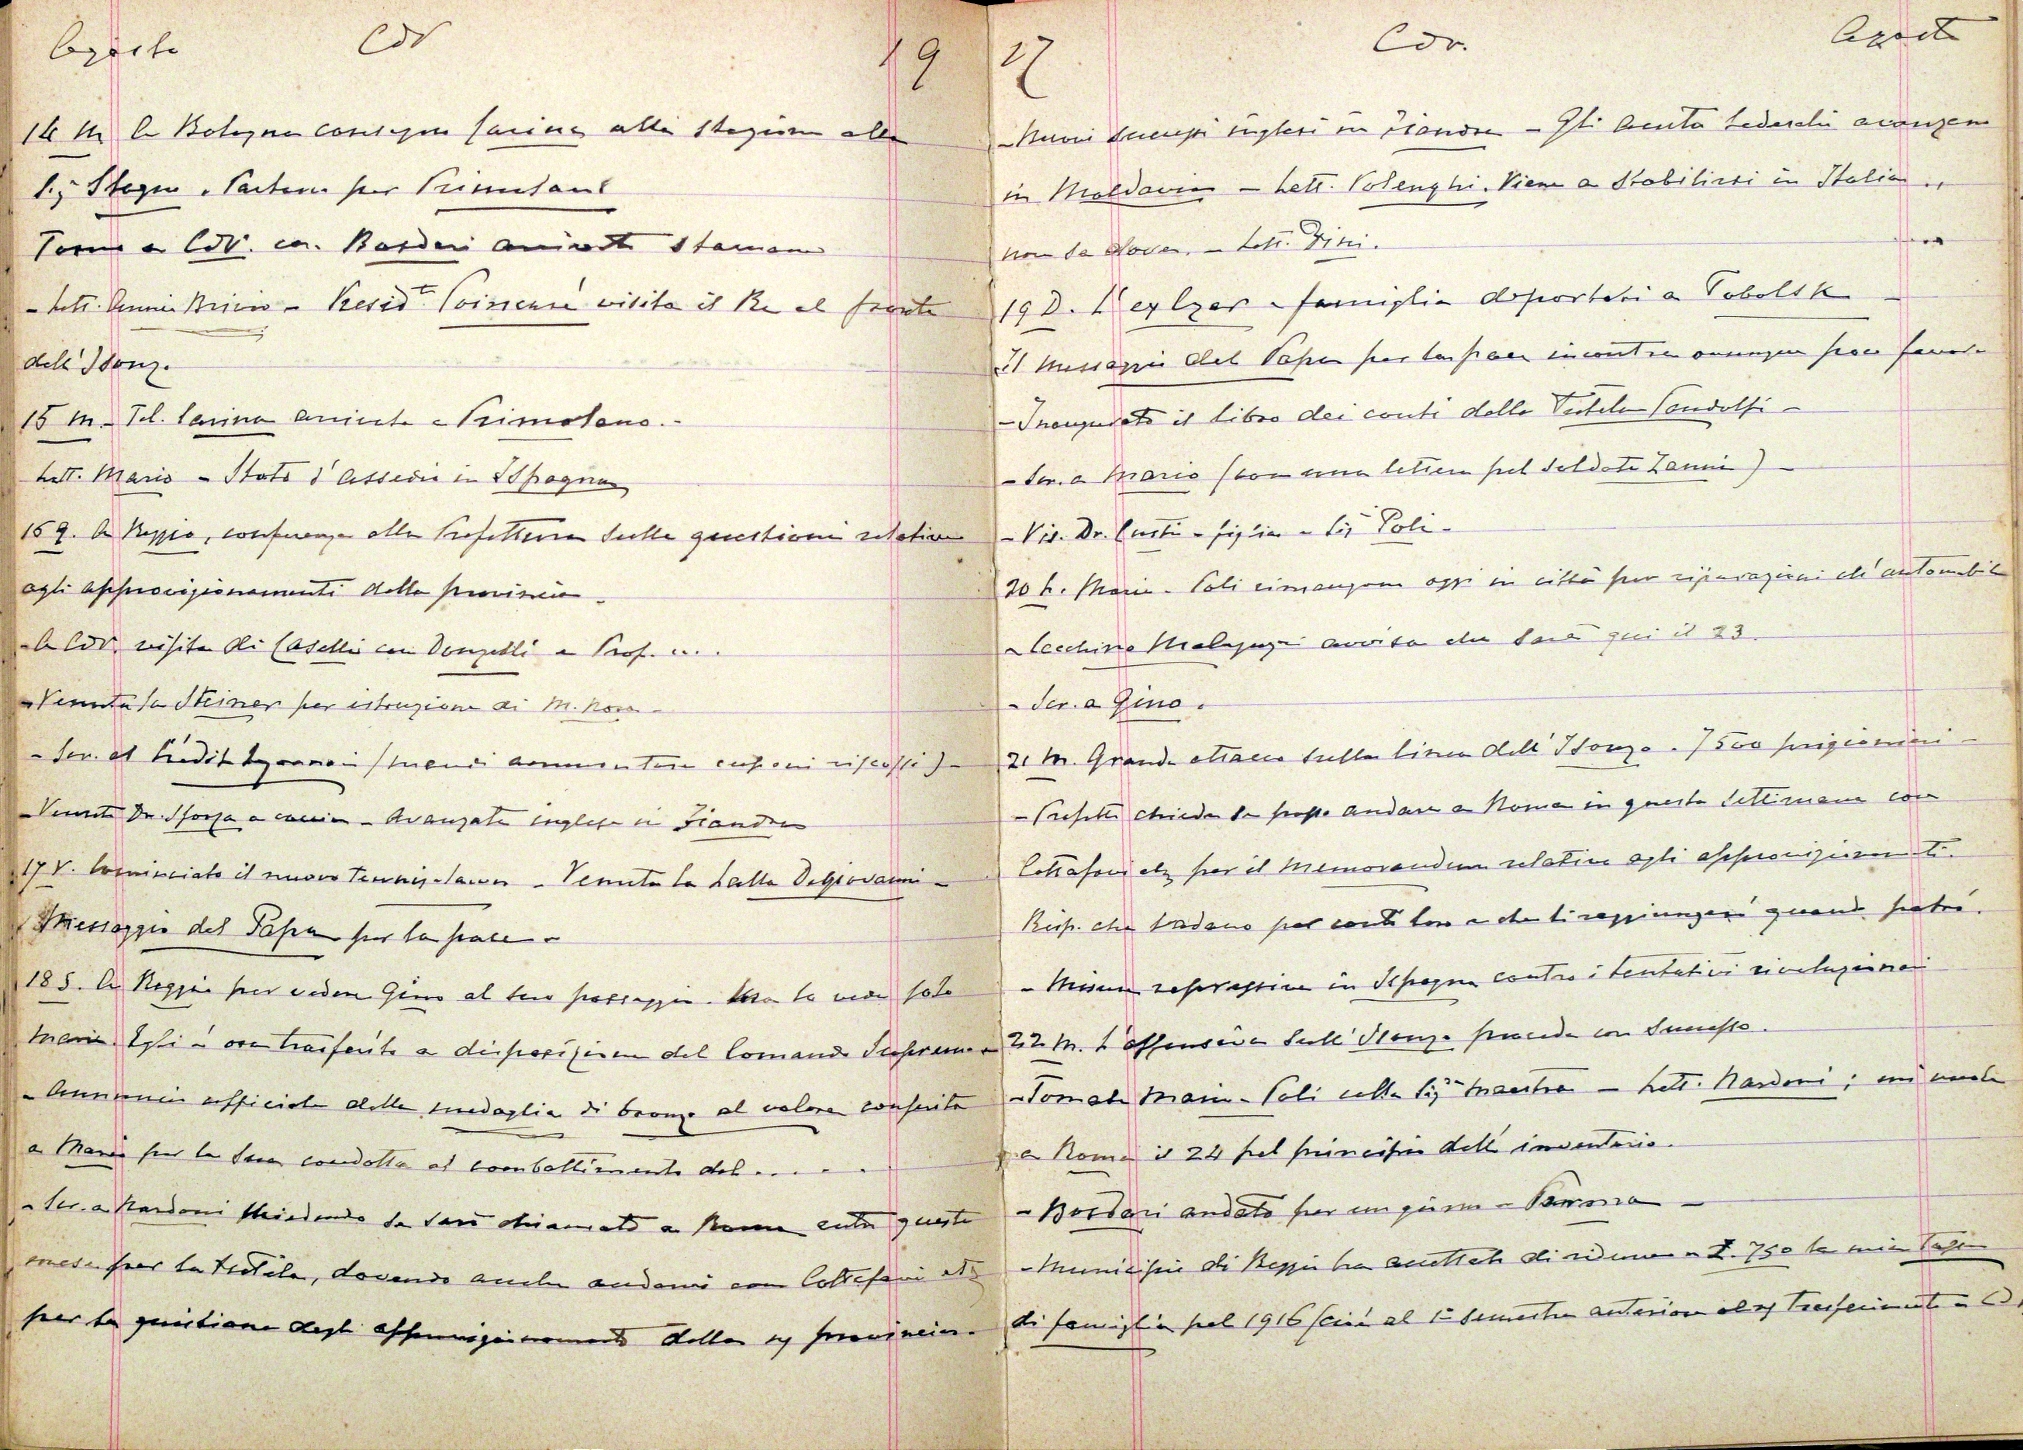 Agosto CdV 19
14 M A Bologna consegno Carina alla stazione alla
Sig. Stagni. Partono per Primolano
Torno a CdV. con Bosdari arrivato stamane
- Lett. Annie Brivio - Presid.te Poincaré visita il Re al fronte
dell'Isonzo
15 M. - Tel. Carina arrivata a Primolano. -
Lett. Mario - Stato d'assedio in Ispagna
16 G. A Reggio, conferenza alla Prefettura sulle questioni relative
agli approvigionamenti della provincia -
- A CdV. visita di Caselli con Donzelli e Prof. ....
- Venuta la Steiner per istruzione di M. Nora -
- Scr. al Crédit Lyonnais ( cuponi riscossi) -
- Venuto Dr. Sforza a caccia - Avanzata inglese in Fiandra
17 V. Cominciato il nuovo tennis-lawn - Venuta la Lalla Degiovanni -
Messaggio del Papa per la pace -
18 S. A Reggio per vedere Gino al suo passaggio. Ma lo vede solo
Maria. Egli è ora trasferito a disposizione del Comando Supremo -
- Annuncio ufficiale della medaglia di bronzo al valore conferita
a Mario per la sua condotta al combattimento del .....
- Scr. a Nardoni chiedendo se sarò chiamato a Roma entro questo
mese per la tutela, dovendo anche andarvi con Cottafavi etc
per la quistione degli approvvigionamenti della provincia.
17 CdV. Agosto
- Nuovi successi inglesi in Fiandra - Gli Austro tedeschi avanzano
in Moldavia - Lett. Polenghi. Viene a stabilirsi in Italia ..
non sa dove. - Lett. Pini.
19 D. L'ex Czar e famiglia deportati a Tobolsk -
Il messaggio del Papa per la pace incontra ovunque poco favore
- Inaugurato il libro dei conti della Tutela Pandolfi -
- Scr. a Mario (con una lettera pel soldato Zanni) -
- Vis. Dr. Custi e figlia e Sig. Poli -
20 L. Maria e Poli rimangono oggi in città per riparazioni all'automobile
- Cecchino Malaguzzi avvisa che sarà qui il 23.
- Scr. a Gino.
21 M. Grande attacco sulla linea dell'Isonzo. 7500 prigionieri -
- Prefetto chiede se posso andare a Roma in questa settimana con
Cottafavi etc per il Memorandum relativo agli approvvigionamenti.
Risp. che vadano per conto loro e che li raggiungerò quando potrò.
- Misure repressive in Ispagna contro i tentativi rivoluzionari
22 M. L'offensiva sull'Isonzo procede con successo.
- Tornate Maria e Poli colla Sig.na maestra - Lett. Nardoni; mi vuole
a Roma il 24 pel principio dell'inventario.
- Bosdari andato per un giorno a Parma -
- Municipio di Reggio ha accettato di ridurre a £. 750 la mia tassa
di famiglia pel 1916 (cioè al 1° semestre anteriore al trasferimento a Cdv